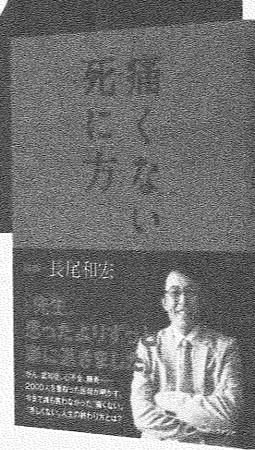 痛くない
死に方
長尾和宏
「先生、
思ったよりずっと
楽に逝きました
がん、認知症、心不全、腎臓
2000人を看取った医師が明かす、
今まで誰も言わなかった「痛くない」
「苦しくない」人生の終わり方とは?